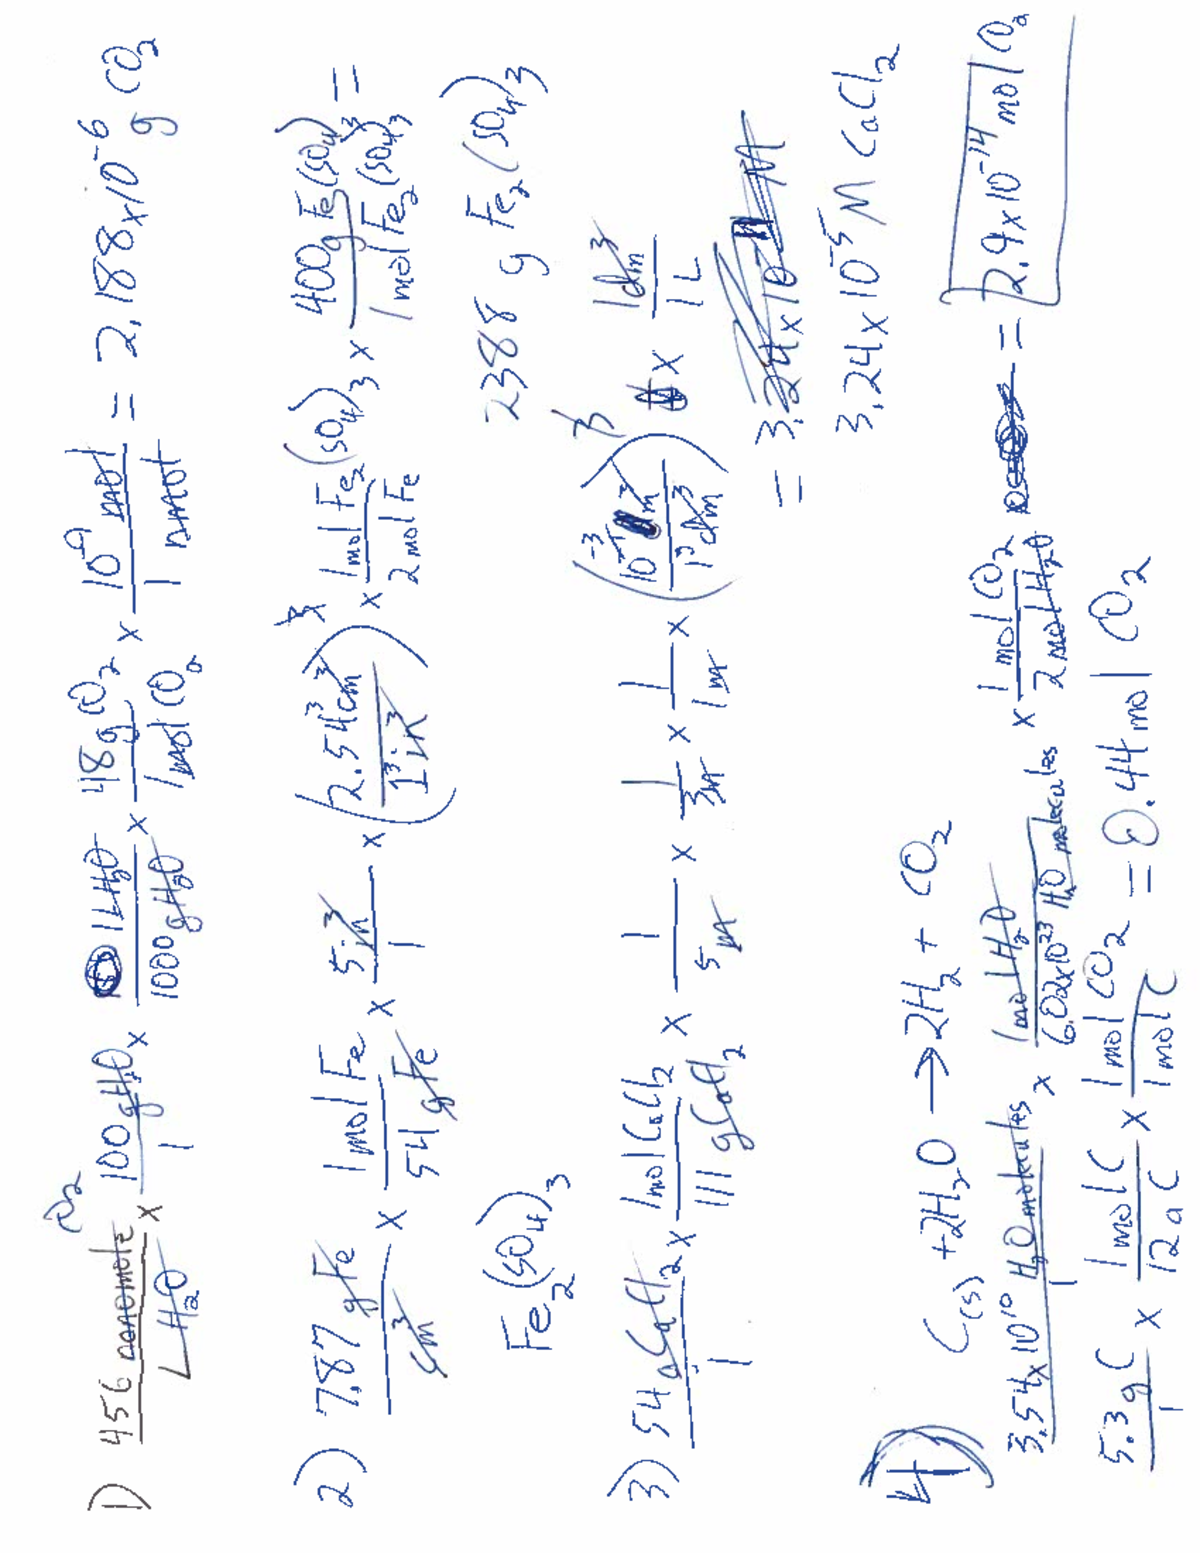 1) 456 nanomole CO2 / L H2O × 100 g H2O / 1 × 1 L H2O / 1000 g H2O × 48 g CO2 / 1 mol CO2 × 10^-9 mol / 1 nmol = 2.188 × 10^-6 g CO2
2) 7.87 g Fe / cm^3 × 1 mol Fe / 54 g Fe × 5 in^3 / 1 × (2.54^3 cm^3 / 1^3 in^3) × 1 mol Fe2(SO4)3 / 2 mol Fe × 400 g Fe2(SO4)3 / 1 mol Fe2(SO4)3 =
Fe2(SO4)3
2388 g Fe2(SO4)3
3) 54 g CaCl2 / 1 × 1 mol CaCl2 / 111 g CaCl2 × 1 / 5 m × 1 / 3 m × 1 / 1 m × (10^-3 m^3 / 1^3 dm^3) × 1 dm^3 / 1 L
= 3.24 × 10
3.24 × 10^-5 M CaCl2
4) C(s) + 2H2O → 2H2 + CO2
3.54 × 10^10 H2O molecules / 1 × 1 mol H2O / 6.02 × 10^23 H2O molecules × 1 mol CO2 / 2 mol H2O = 2.9 × 10^-14 mol CO2
5.3 g C / 1 × 1 mol C / 12 g C × 1 mol CO2 / 1 mol C = 0.44 mol CO2